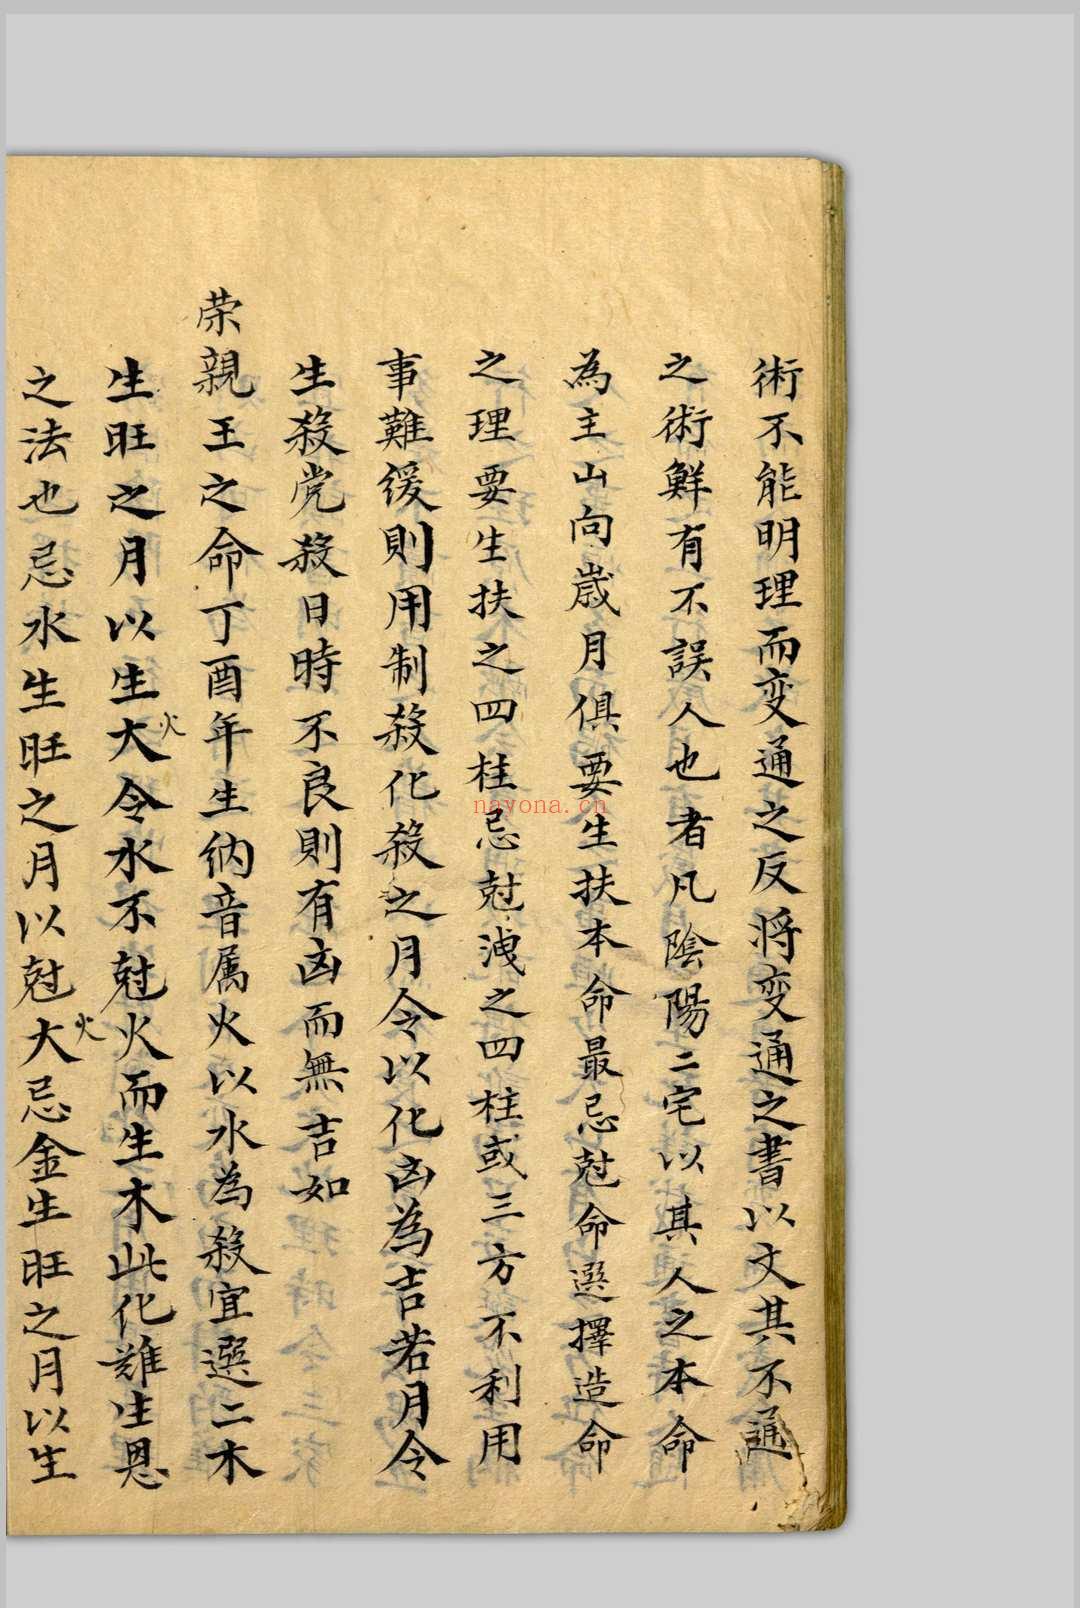 術不能明理而变通之反將变通之書以文其不通
之術鮮有不誤人也者凡陰陽二宅以其人之本命
為主山向歲月俱要生扶本命最忌尅命選擇造命
之理要生扶之四柱忌尅洩之四柱或三方不利用
事難緩則用制殺化殺之月令以化凶為吉若月令
生殺党殺日時不良則有凶而無吉如
荣親王之命丁酉年生納音属火以水為殺宜選二木
生旺之月以生大火令水不尅火而生木此化难生恩
之法也忌水生旺之月以尅大火忌金生旺之月以生
nayona.cn